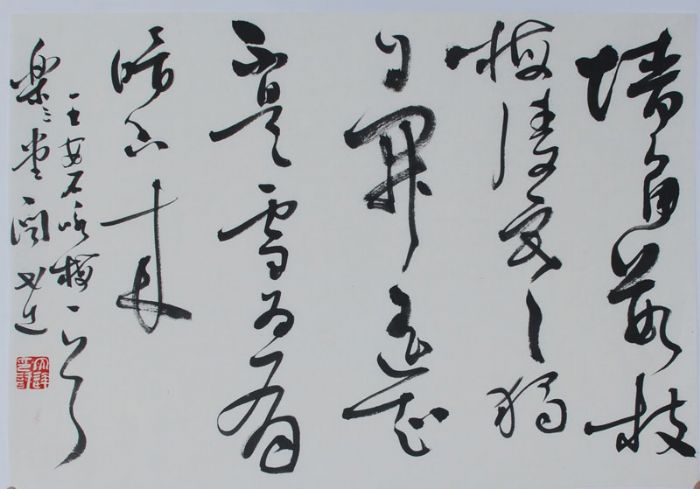 墙角数枝
梅凌寒独
自開遥知
不是雪为有
暗香来
王安石咏梅一首
樂 堂